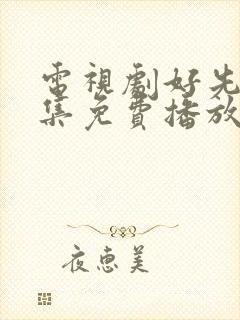 電視劇好先
集免費播放
夜恵美